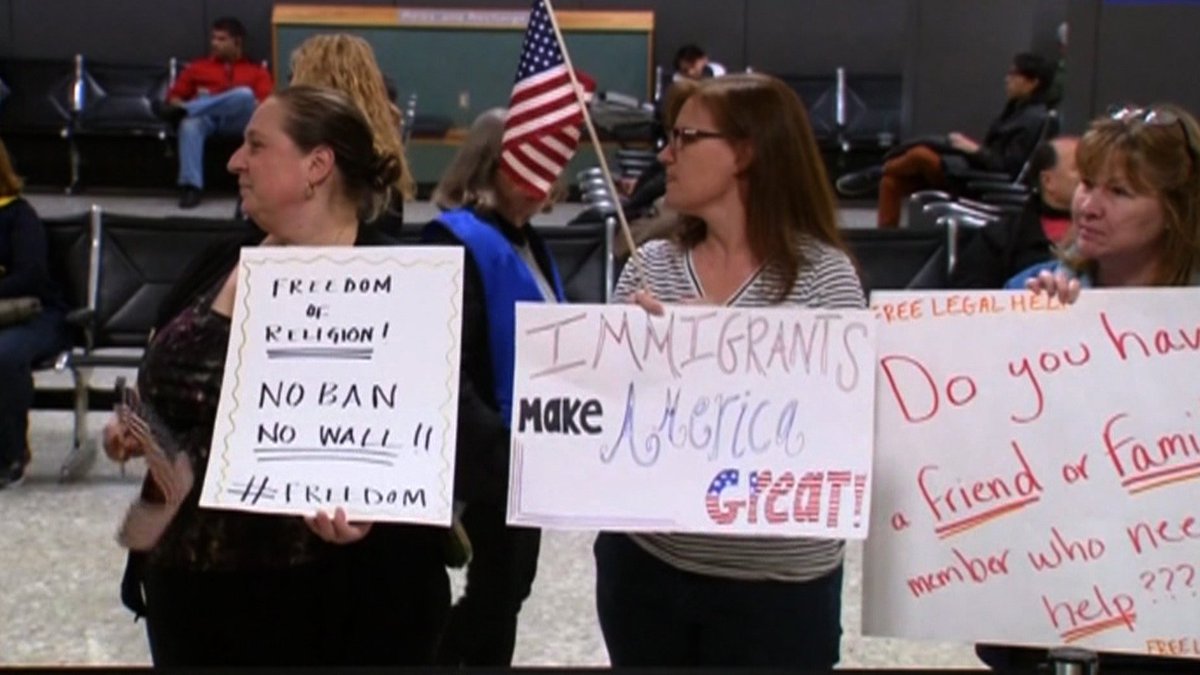 FREEDOM
OF
RELIGION!
NO BAN
NO WALL!!
#FREEDOM
IMMIGRANTS
MAKE America
Great!
FREE LEGAL HELP
Do you hav
a friend or Fami
member who nee
help???
FREE L